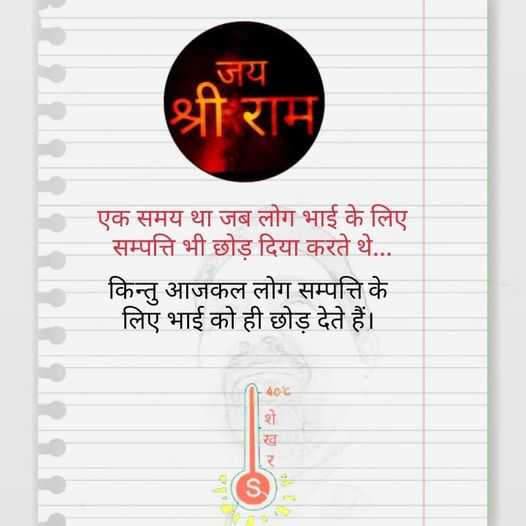 जय
श्री राम
एक समय था जब लोग भाई के लिए
सम्पत्ति भी छोड़ दिया करते थे...
किन्तु आजकल लोग सम्पत्ति के
लिए भाई को ही छोड़ देते हैं।
40℃
शे
ख
र
S